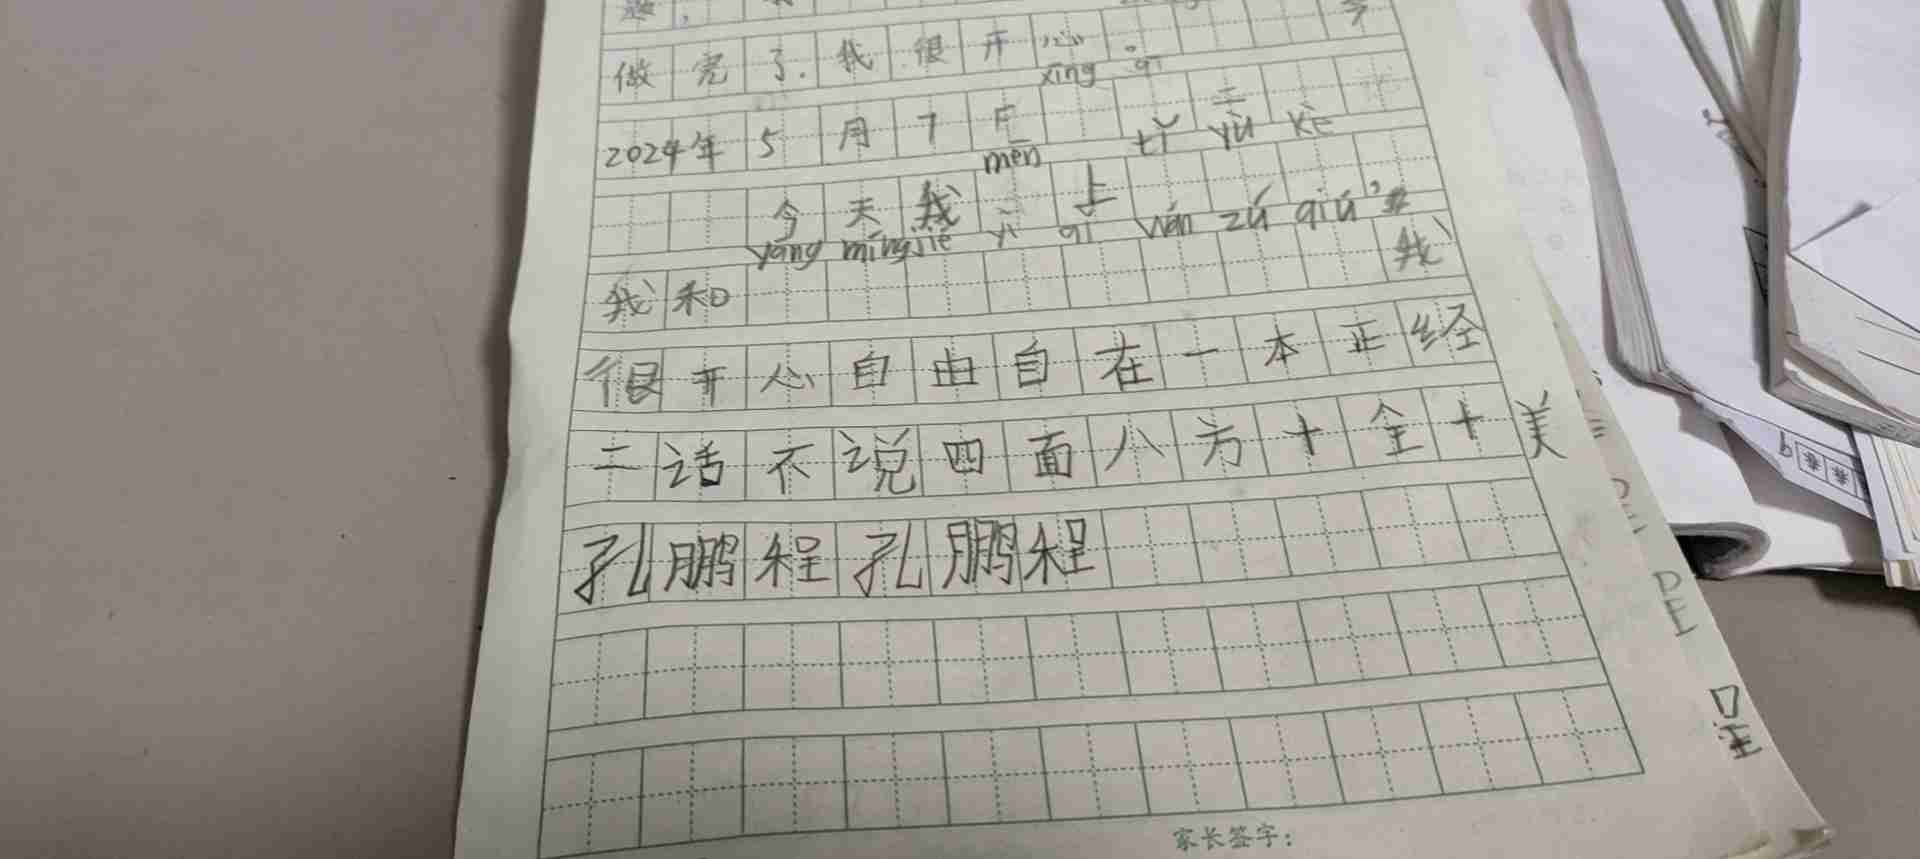 做完了.我很开心。
xīng qī
2024年5月7日 二
men tǐ yù kè
今天我 上
yáng míng jiè yì qǐ wán zú qiú
我和 我
很开心自由自在一本正经
二话不说四面八方十全十美
孔鹏程孔鹏程
家长签字: